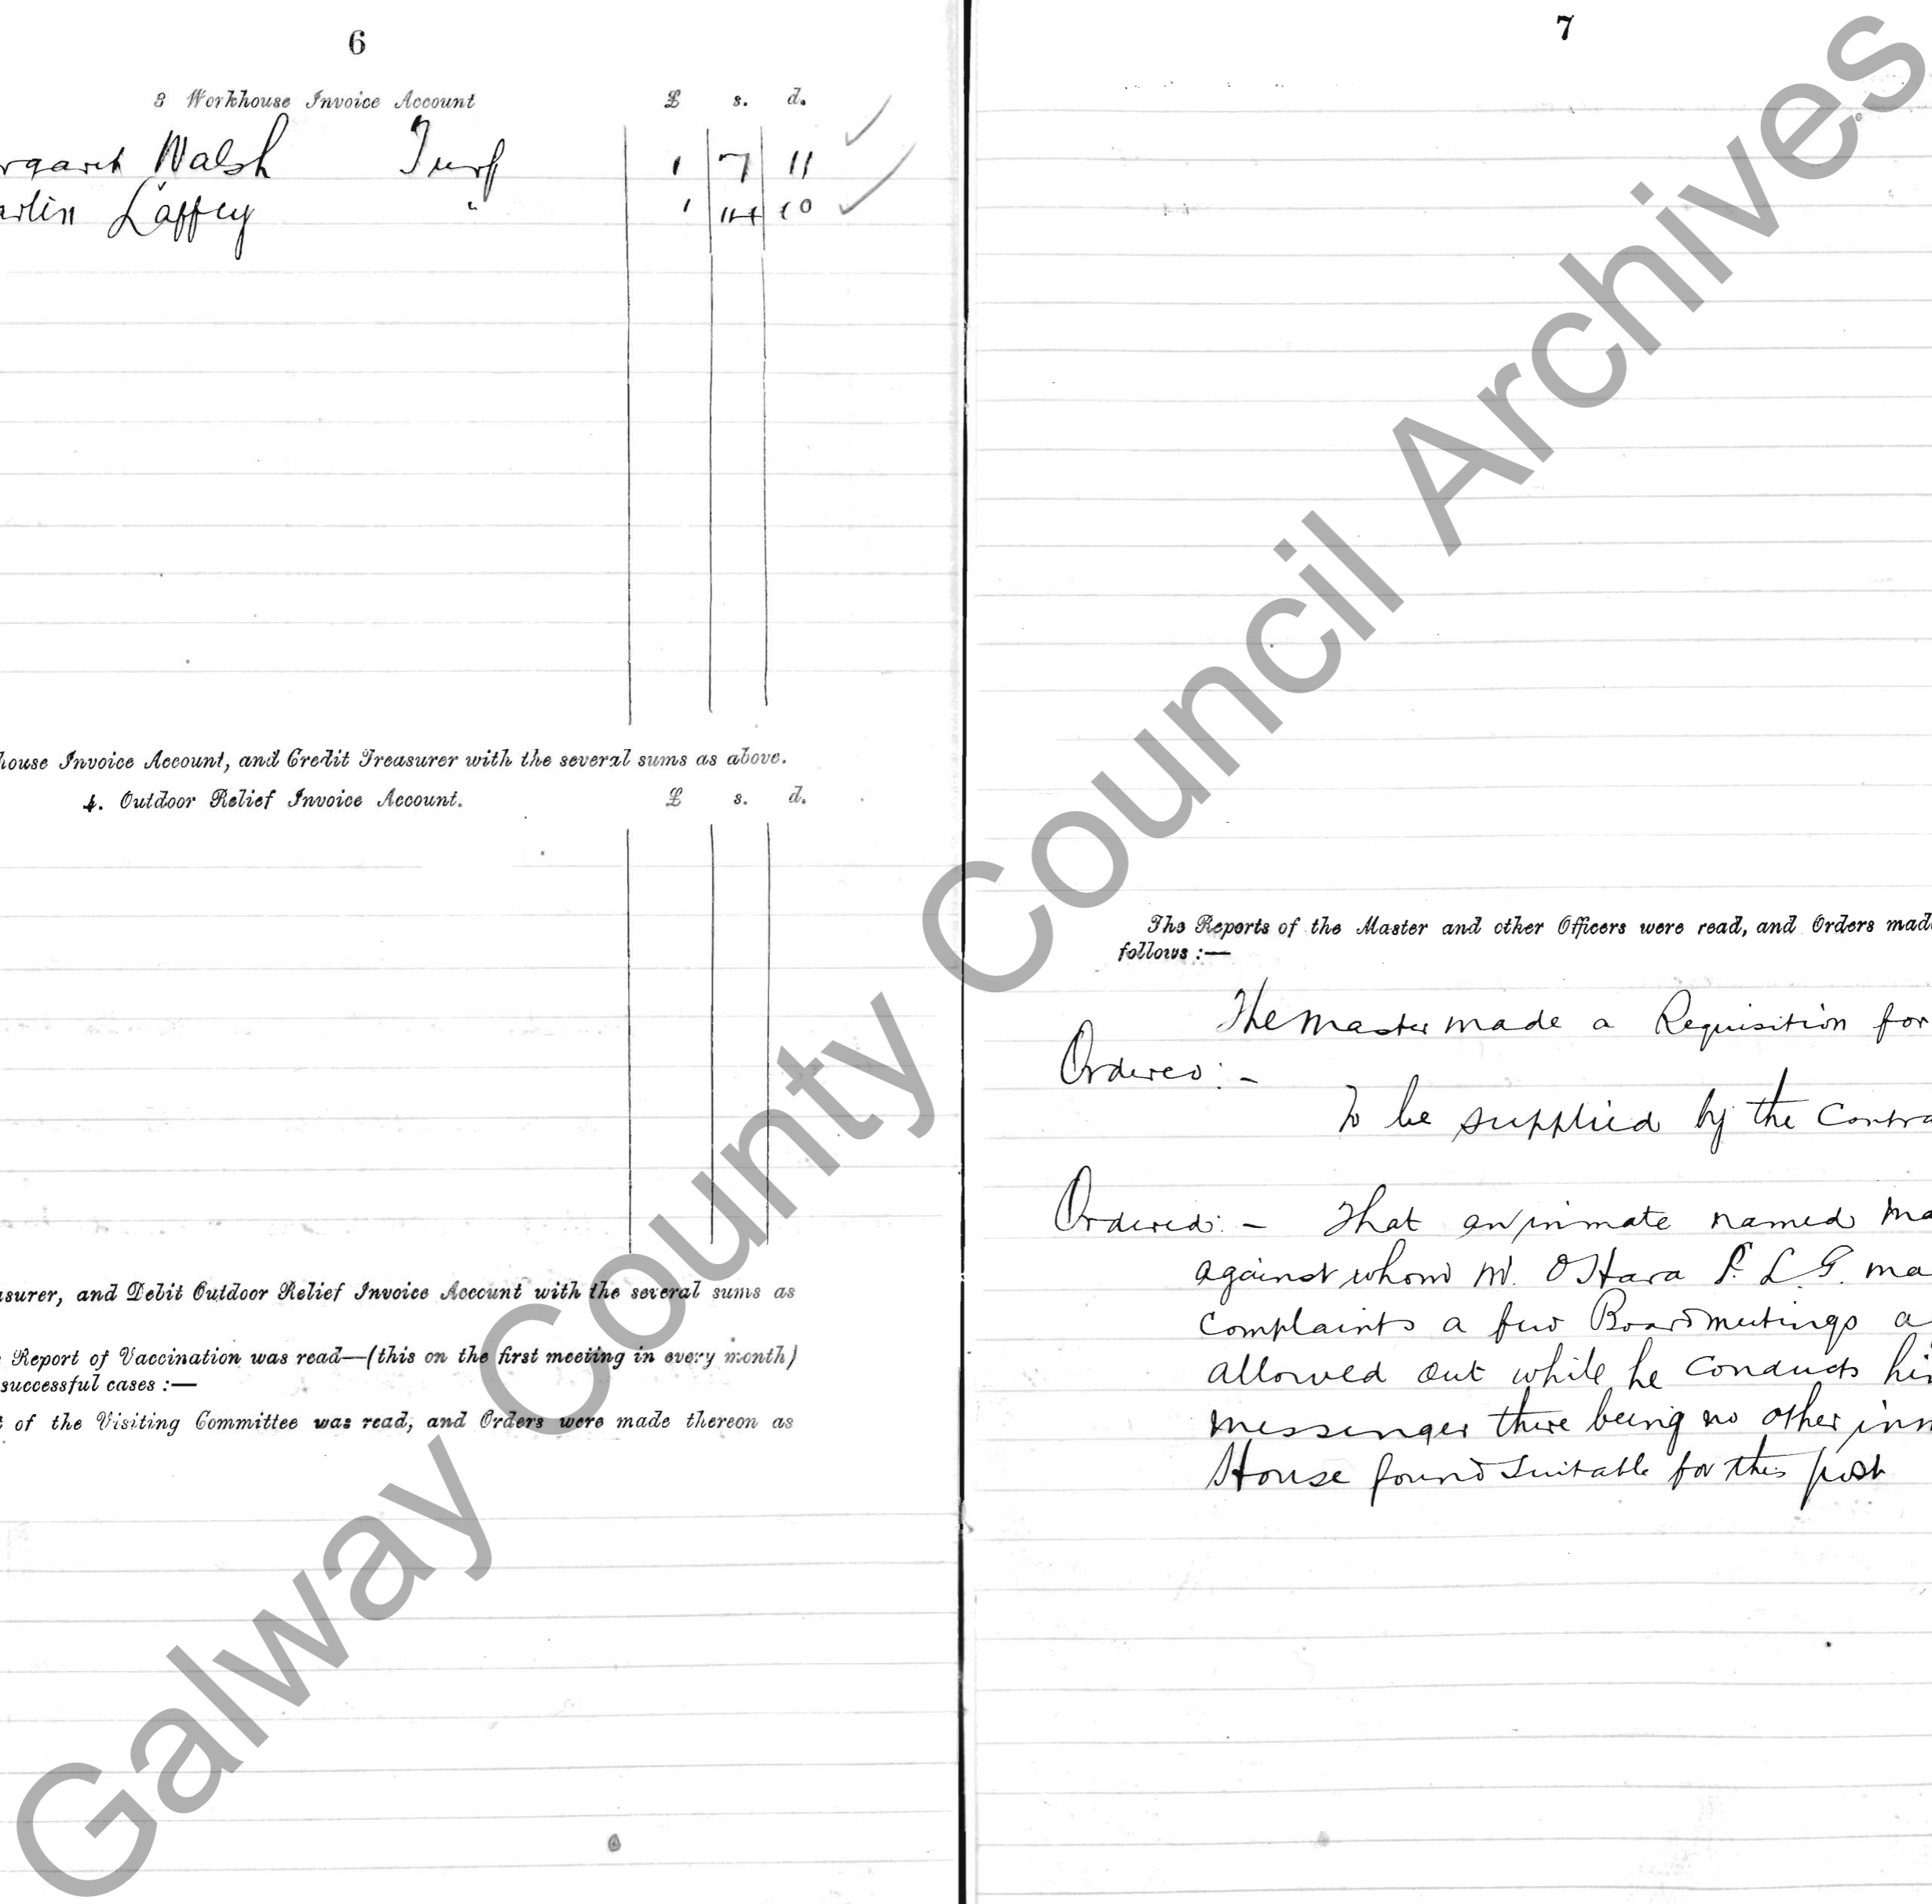 6
3 Workhouse Invoice Account £ s. d.
rgaret Walsh Turf 1 7 11
artin Laffey " 1 14 10
house Invoice Account, and Credit Treasurer with the several sums as above.
4. Outdoor Relief Invoice Account. £ s. d.
surer, and Debit Outdoor Relief Invoice Account with the several sums as
Report of Vaccination was read—(this on the first meeting in every month)
successful cases :—
t of the Visiting Committee was read, and Orders were made thereon as
7
The Reports of the Master and other Officers were read, and Orders mad
follows :—
The Master made a Requisition for
Ordered: -
To be supplied by the Contra
Ordered: - That an inmate named Ma
against whom M. O'Hara P. L. G. ma
complaints a few Board meetings a
allowed out while he conducts hi
messenger there being no other inm
House found suitable for this post
Galway County Council Archives